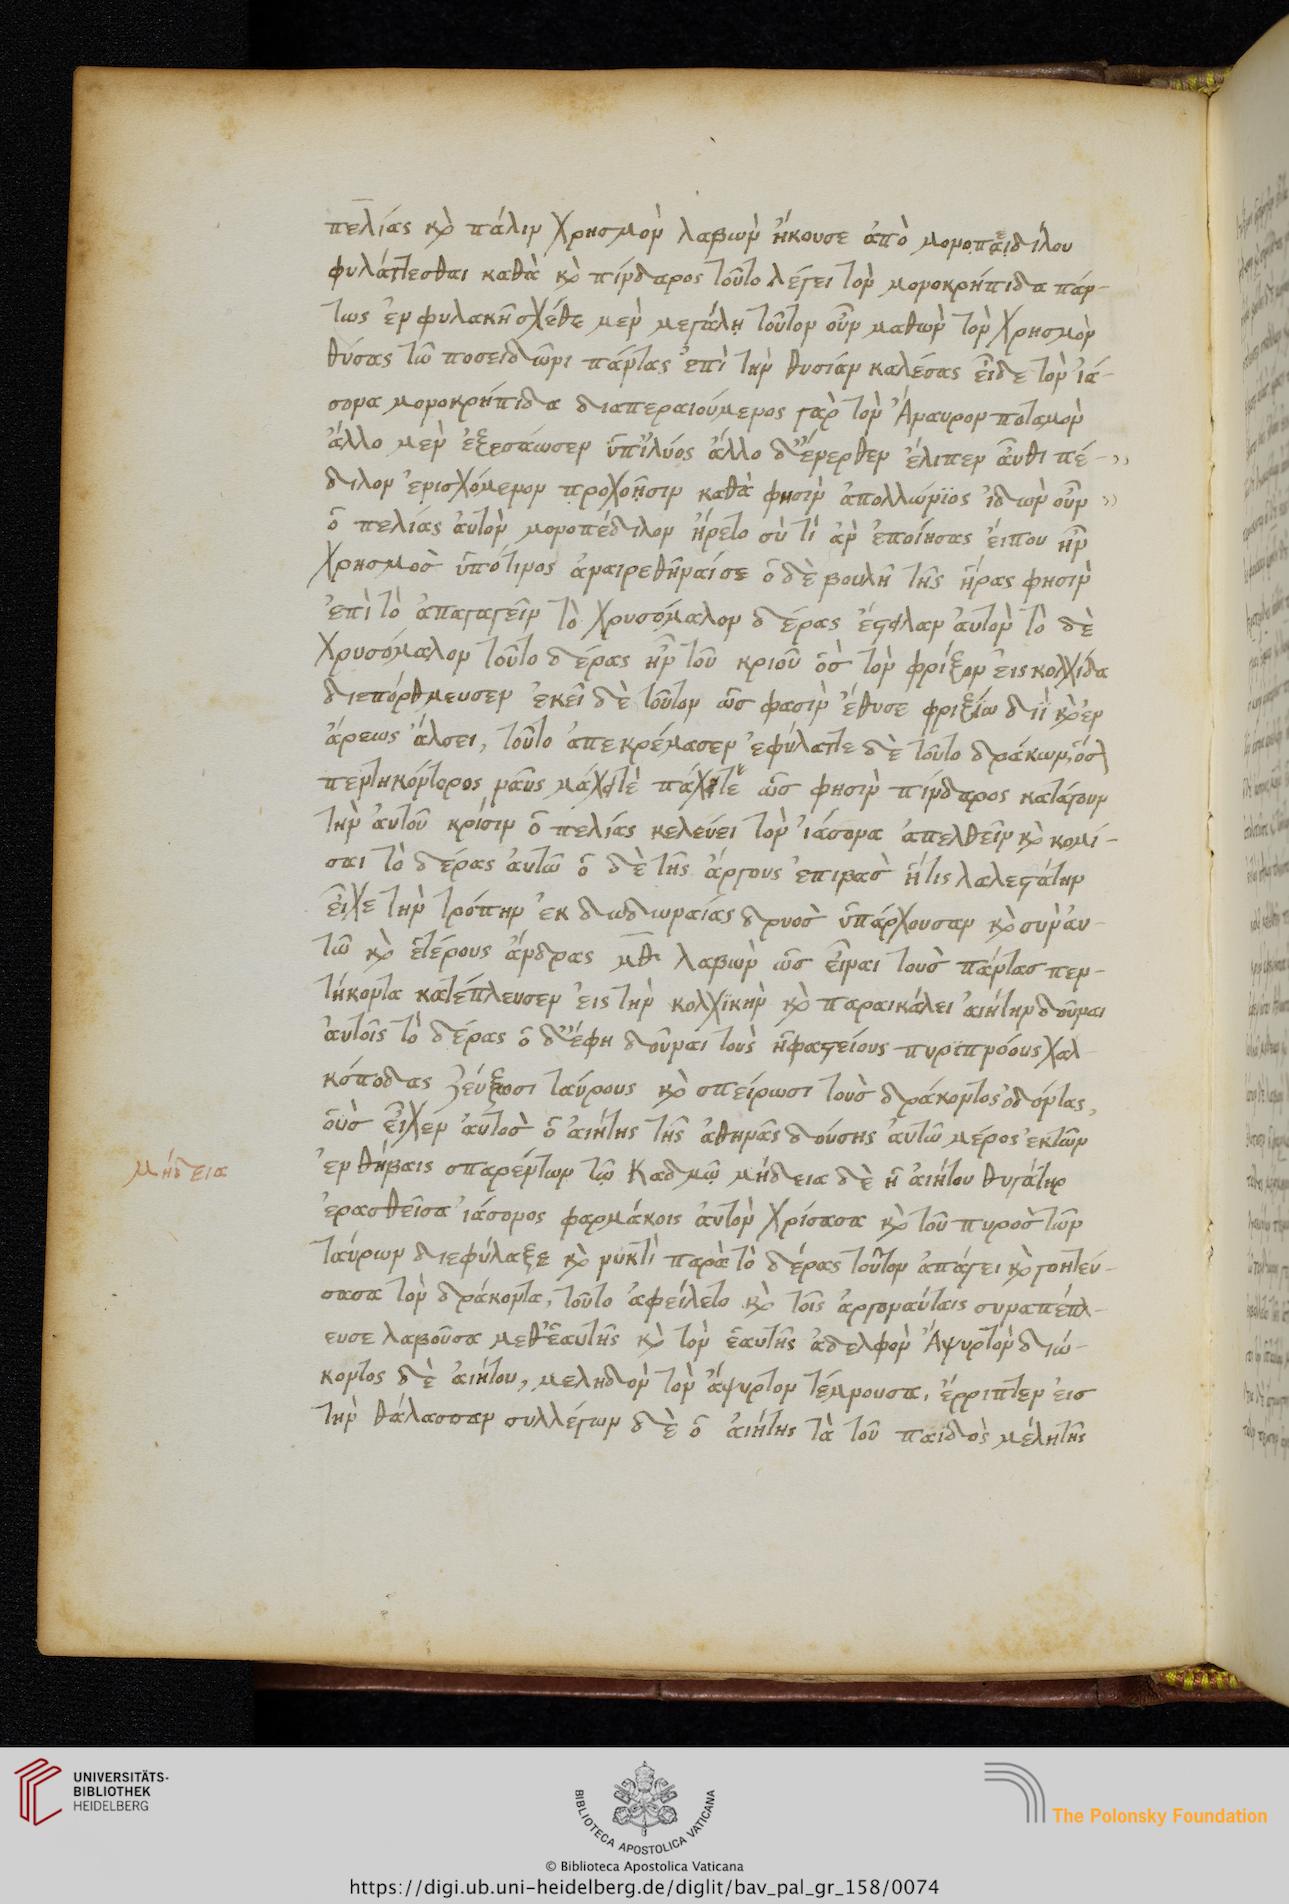 πελίας καὶ πάλιν χρησμὸν λαβὼν ἤκουσε ἀπὸ μονοπαιδίλου
φυλάττεσθαι καθὰ καὶ πίνδαρος τοῦτο λέγει τὸν μονοκρήπιδα πάν-
τως ἐν φυλακῆ σχέθε μὲν μεγάλῃ τοῦτον οὖν μαθὼν τὸν χρησμὸν
θύσας τῶ ποσειδῶνι πάντας ἐπὶ τὴν θυσίαν καλέσας εἶδε τὸν ἰά-
σονα μονοκρήπιδα διαπεραιούμενος γὰρ τὸν Ἄναυρον ποταμὸν
ἄλλο μὲν ἐξεσάωσεν ὑπ' ἰλύος ἄλλο δ' ἔνερθεν ἔλιπεν αὖθι πέ-
διλον ἐνισχόμενον προχοῆσιν καθὰ φησὶν ἀπολλώνϊος ἰδὼν οὖν
ὁ πελίας αὐτὸν μονοπέδιλον ἤρετο σὺ τί ἂν ἐποίησας εἴπου ἦν
χρησμὸς ὑπό τινος ἀναιρεθῆναί σε ὁ δὲ βουλῆ τῆς ἥρας φησὶν
ἐπὶ τὸ ἀπαγαγεῖν τὸ χρυσόμαλον δέρας ἔστελαν αὐτὸν τὸ δὲ
χρυσόμαλον τοῦτο δέρας ἦν τοῦ κριοῦ ὃς τὸν φρίξον εἰς κολχίδα
διεπόρθμευσεν ἐκεῖ δὲ τοῦτον ὥς φασὶν ἔθυσε φριξίω διῒ καὶ ἐν
ἄρεως ἄλσει, τοῦτο ἀπεκρέμασεν ἐφύλαττε δὲ τοῦτο δράκων, ὃς
πεντηκόντορος ναῦς μάχει τὲ πάχει τὲ ὥς φησὶν πίνδαρος κατάγουν
τὴν αὐτοῦ κρίσιν ὁ πελίας κελεύει τὸν ἰάσονα ἀπελθεῖν καὶ κομί-
σαι τὸ δέρας αὐτῶ ὁ δὲ τῆς ἄργους ἐπιβὰς ἥτις λαλεστάτην
εἶχε τὴν τρόπην ἐκ δωδωναίας δρυὸς ὑπάρχουσαν καὶ σὺν αὐ-
τῶ καὶ ἑτέρους ἄνδρας μθ λαβὼν ὡς εἶναι τοὺς πάντας πεν-
τήκοντα κατέπλευσεν εἰς τὴν κολχϊκὴν καὶ παραικάλει αἰήτην δοῦναι
αὐτοῖς τὸ δέρας ὁ δ' ἔφη δοῦναι τοὺς ἡφαστείους πυριπνόους χαλ
κόποδας ζεύξωσι ταύρους καὶ σπείρωσι τοὺς δράκοντος ὀδόντας,
οὓς εἶχεν αὐτὸς ὁ αἰήτης τῆς ἀθηνᾶς δούσης αὐτῶ μέρος ἐκ τῶν
ἐν θήβαις σπαρέντων τῷ Καδμῷ μήδεια δὲ ἡ αἰήτου θυγάτηρ
ἐρασθεῖσα ἰάσονος φαρμάκοις αὐτὸν χρίσασα καὶ τοῦ πυρὸς τῶν
ταύρων διεφύλαξε καὶ νυκτὶ παρὰ τὸ δέρας τοῦτον ἀπάγει καὶ γοητεύ-
σασα τὸν δράκοντα, τοῦτο ἀφείλετο καὶ τοῖς ἀργοναύταις συναπέπλ-
ευσε λαβοῦσα μεθ' ἑαυτῆς καὶ τὸν ἑαυτῆς ἀδελφὸν Ἄψυρτον διώ-
κοντος δὲ αἰήτου, μεληδὸν τὸν ἄψυρτον τέμνουσα, ἔρριπτεν εἰς
τὴν θάλασσαν συλλέγων δὲ ὁ αἰήτης τὰ τοῦ παιδὸς μέλη τῆς
μήδεια
UNIVERSITÄTS-
BIBLIOTHEK
HEIDELBERG
BIBLIOTECA APOSTOLICA VATICANA
The Polonsky Foundation
© Biblioteca Apostolica Vaticana
https://digi.ub.uni-heidelberg.de/diglit/bav_pal_gr_158/0074